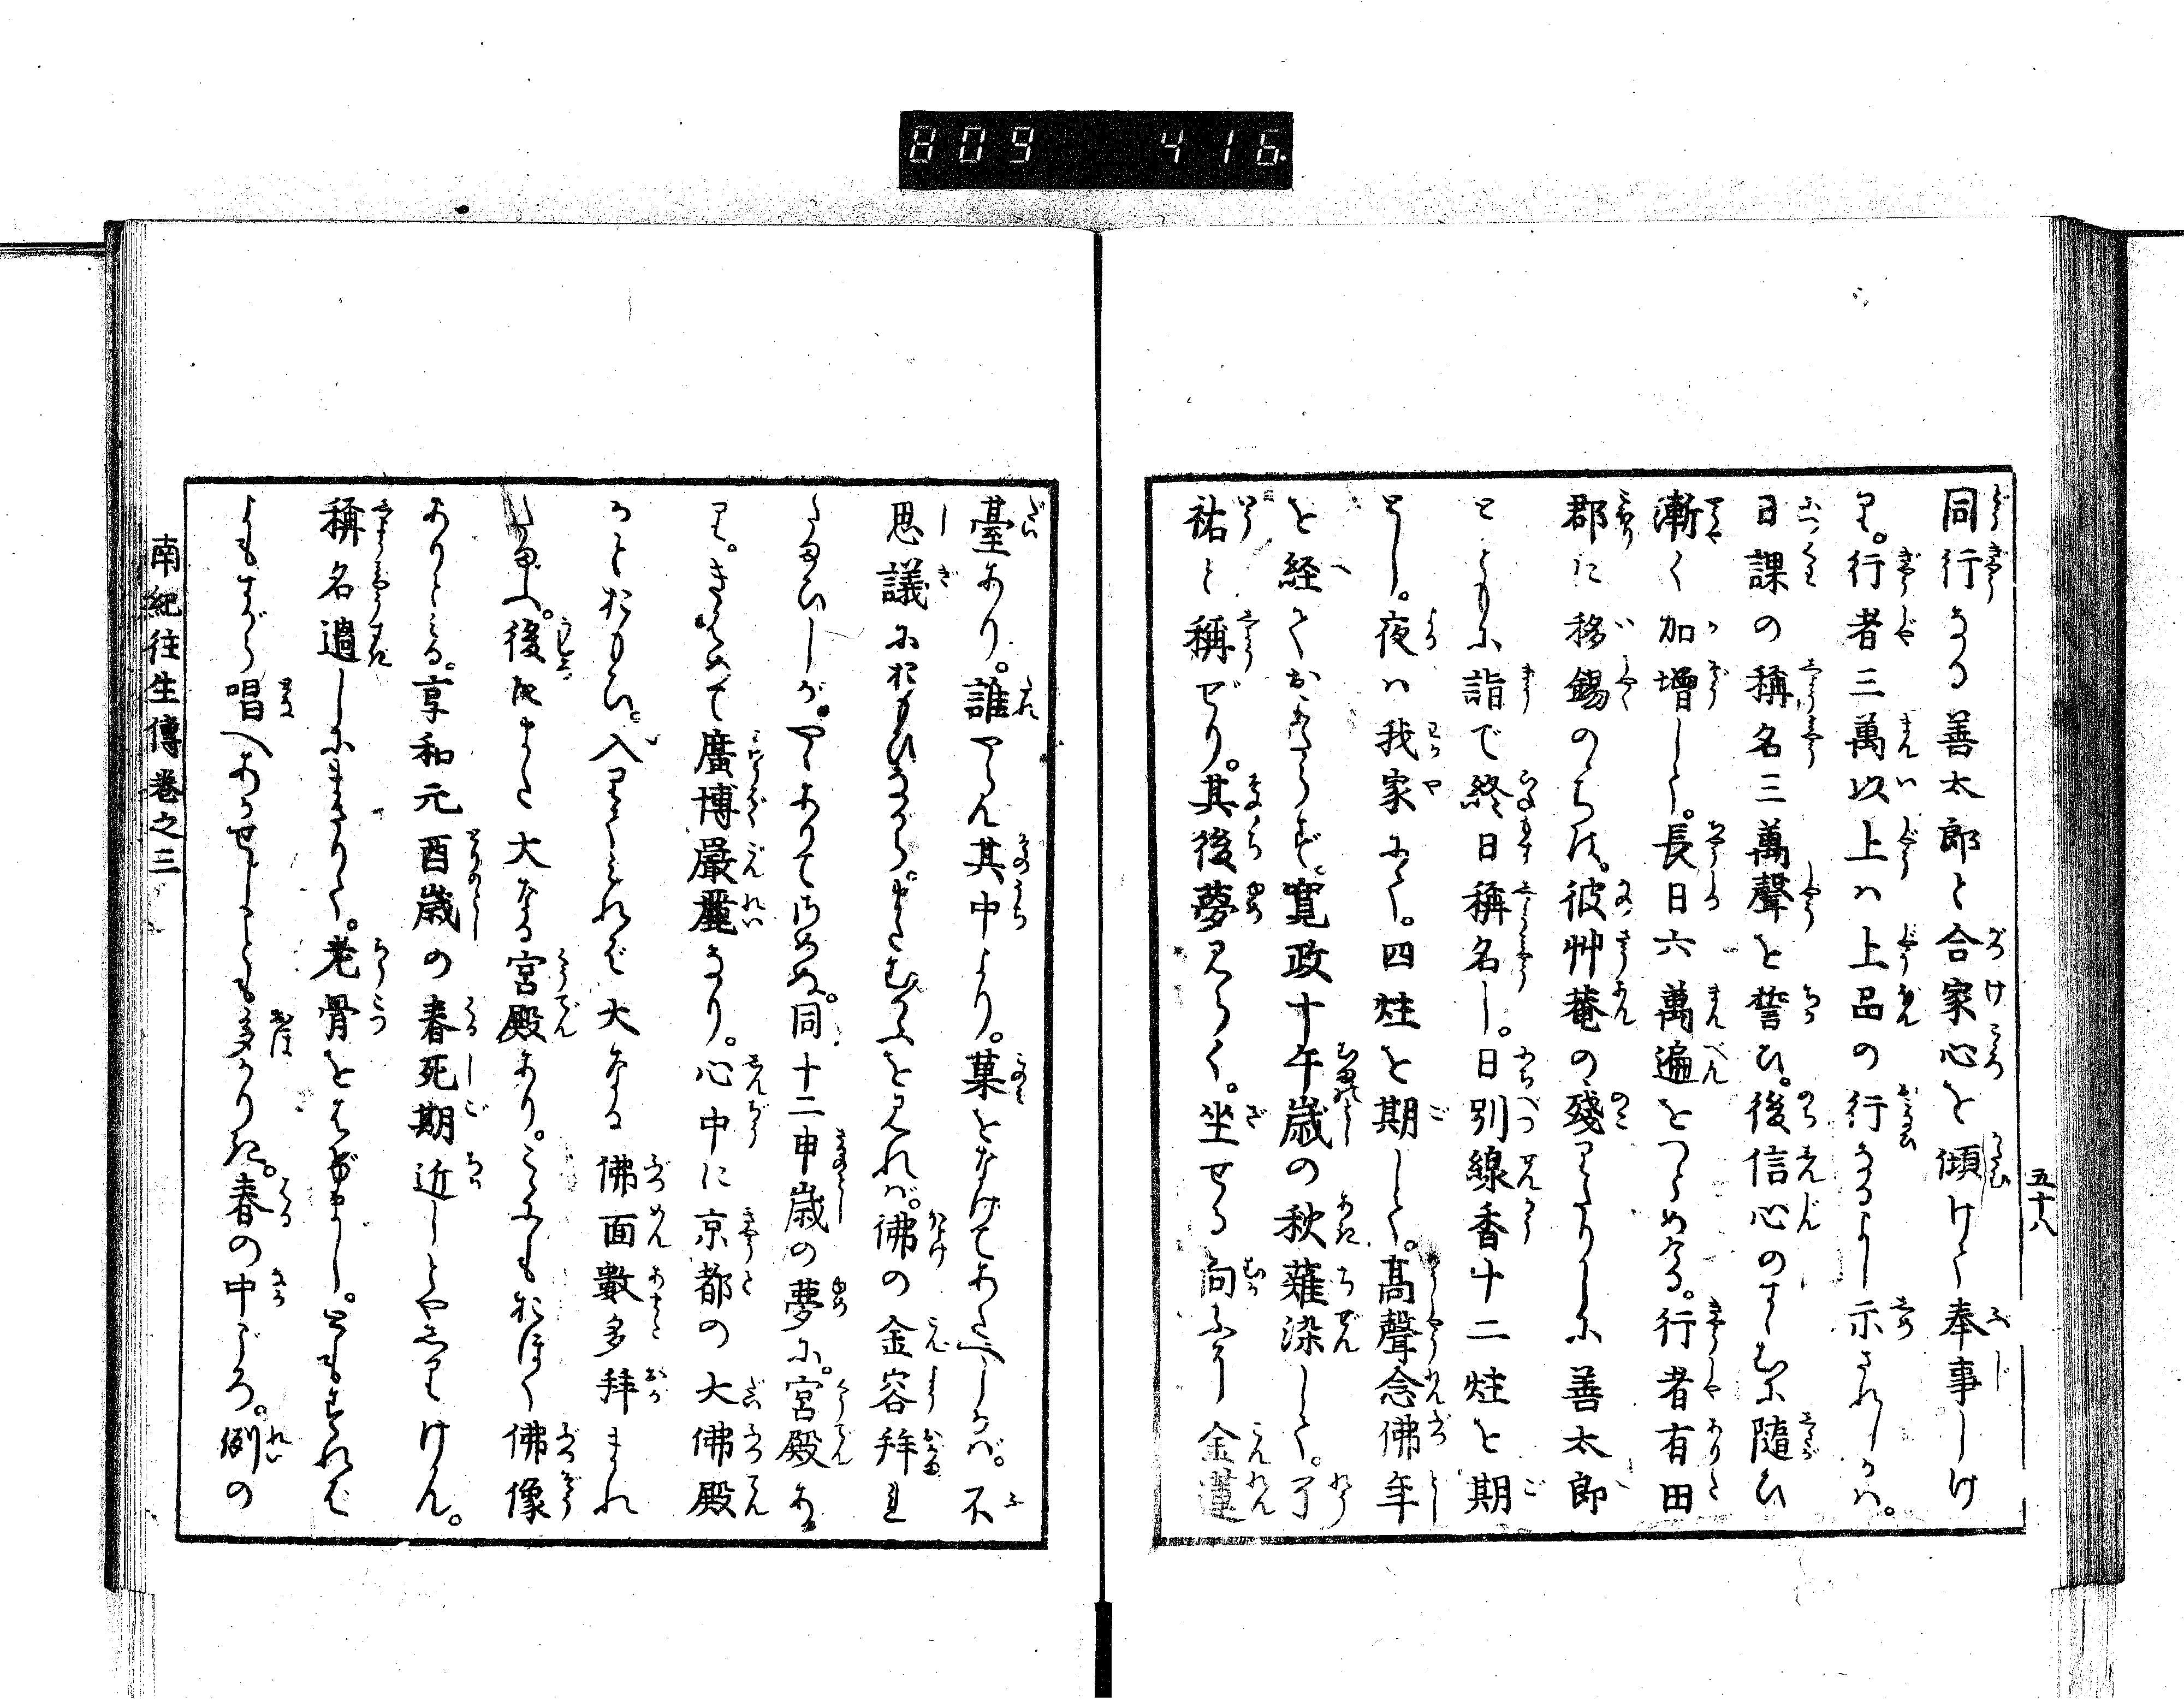 809 416
五十八
同行なる善太郎と合家心を傾けて奉事しけ
り。行者三萬以上ハ上品の行なるよし示されしかハ。
日課の稱名三萬聲を誓ひ。後信心のすゝむに隨ひ
漸く加増して。長日六萬遍をつとめける。行者有田
郡に移錫のちは。彼艸菴の殘りたりしに善太郎
とともに詣で終日稱名し。日別線香十二炷を期
とし。夜ハ我家にて。四炷を期として。高聲念佛年
を経ておこたらず。寛政十午歳の秋薙染して。了
祐と稱ぜり。其後夢見らく。坐せる向ふに金蓮
臺あり。誰やらん其中より。菓をなげてあたへしかバ。不
思議におもひながら。またむかふを見れバ。佛の金容拜ま
たまひしが。やゝありてさめぬ。同十二申歳の夢に。宮殿あ
り。きはめて廣博嚴麗なり。心中に京都の大佛殿
かとおもひ。入りてみれバ大なる佛面數多拜まれ
たまふ。後にまた大なる宮殿あり。こゝにもおほく佛像
ありとみる。享和元酉歳の春死期近しとやしりけん。
稱名過しにまさりて。老骨をはげまし。ともすれば
よもすがら唱へあかせしことも多かりき。春の中ごろ。例の
南紀往生傳卷之三